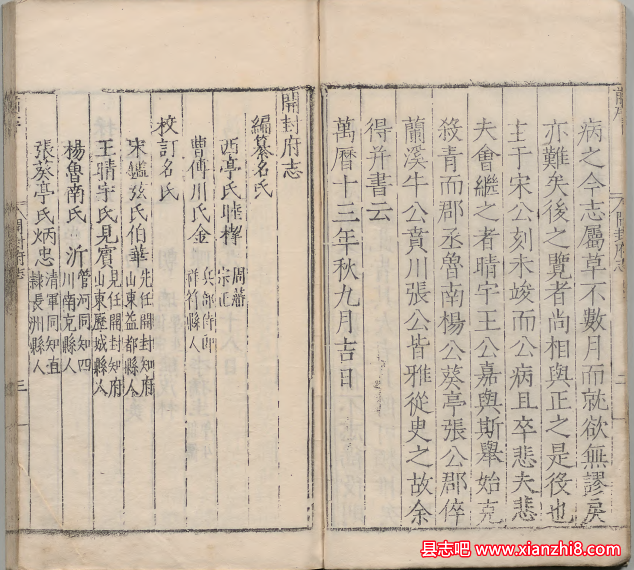 病之今志屬草不數月而就欲無謬戾
亦難矣後之覽者尚相與正之是役也
主于宋公刻未竣而公病且卒悲夫悲
夫會繼之者晴宇王公嘉與斯舉始克
殺青而郡丞魯南楊公葵亭張公郡倅
蘭溪牛公賁川張公皆雅從史之故余
得并書云
萬曆十三年秋九月吉日
開封府志
開封府志
編纂名氏
西亭氏睦㮮 周藩
宗正
曹傅川氏金 兵部侍郎
祥符縣人
校訂名氏
宋鑑弦氏伯華 先任開封知府
山東益都縣人
王晴宇氏見賓 見任開封知府
山東歷城縣人
楊魯南氏 沂 管河同知四
川南充縣人
張葵亭氏炳忠 清軍同知直
隸長洲縣人
開封府志
三
县志吧 www.xianzhi8.com